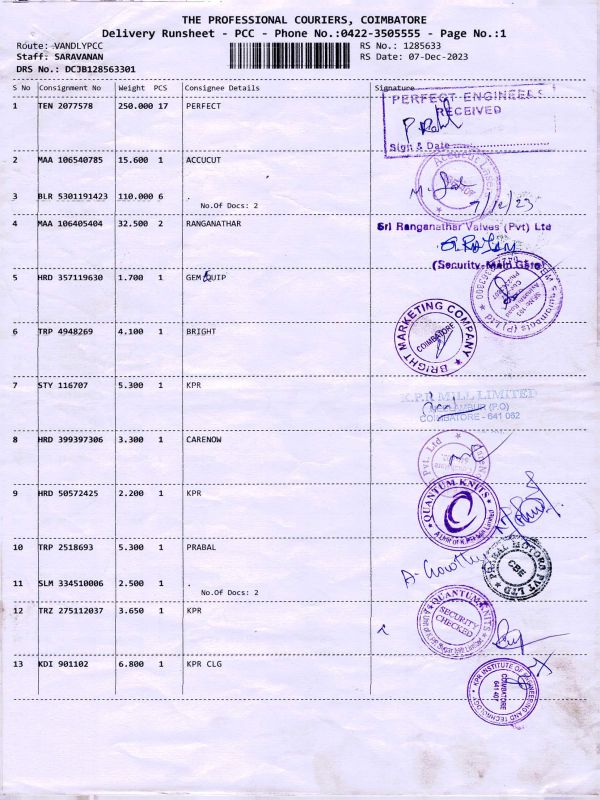 THE PROFESSIONAL COURIERS, COIMBATORE
Delivery Runsheet - PCC - Phone No.:0422-3505555 - Page No.:1
Route: VANDLYPCC RS No.: 1285633
Staff: SARAVANAN RS Date: 07-Dec-2023
DRS No.: DCJB128563301
S No Consignment No Weight PCS Consignee Details Signature
1 TEN 2077578 250.000 17 PERFECT
PERFECT ENGINEERS
RECEIVED
Sign & Date
2 MAA 106540785 15.600 1 ACCUCUT
3 BLR 5301191423 110.000 6 .
No.Of Docs: 2
7/12/23
4 MAA 106405404 32.500 2 RANGANATHAR
Sri Ranganathar Valves (Pvt) Ltd
(Security-Main Gate)
5 HRD 357119630 1.700 1 GEM QUIP
6 TRP 4948269 4.100 1 BRIGHT
BRIGHT MARKETING COMPANY
COIMBATORE
7 STY 116707 5.300 1 KPR
K.P.R MILL LIMITED
COIMBATORE - 641 062
8 HRD 399397306 3.300 1 CARENOW
Pvt. Ltd
9 HRD 50572425 2.200 1 KPR
QUANTUM KNITS
A Unit of K.P.R Mill Limited
10 TRP 2518693 5.300 1 PRABAL
PRABAL MOTORS PVT LTD
CBE
11 SLM 334510006 2.500 1 .
No.Of Docs: 2
12 TRZ 275112037 3.650 1 KPR
QUANTUM KNITS
SECURITY
CHECKED
13 KDI 901102 6.800 1 KPR CLG
KPR INSTITUTE OF ENGINEERING AND TECHNOLOGY
COIMBATORE
641407